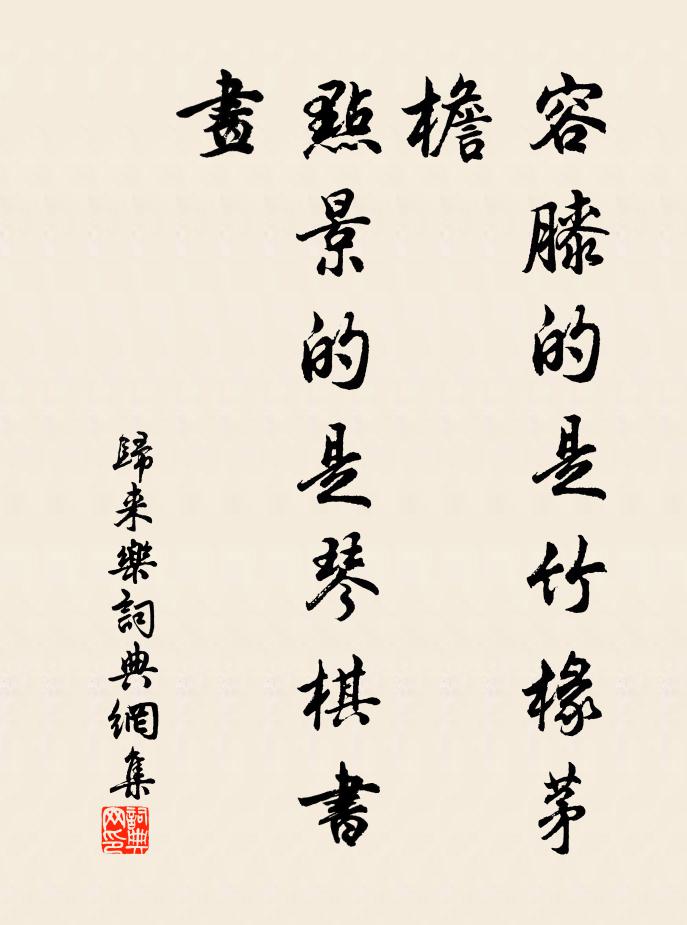 容膝的是竹椽茅
檐
點景的是琴棋書
畫
歸来樂詞典網集
詞典
网印